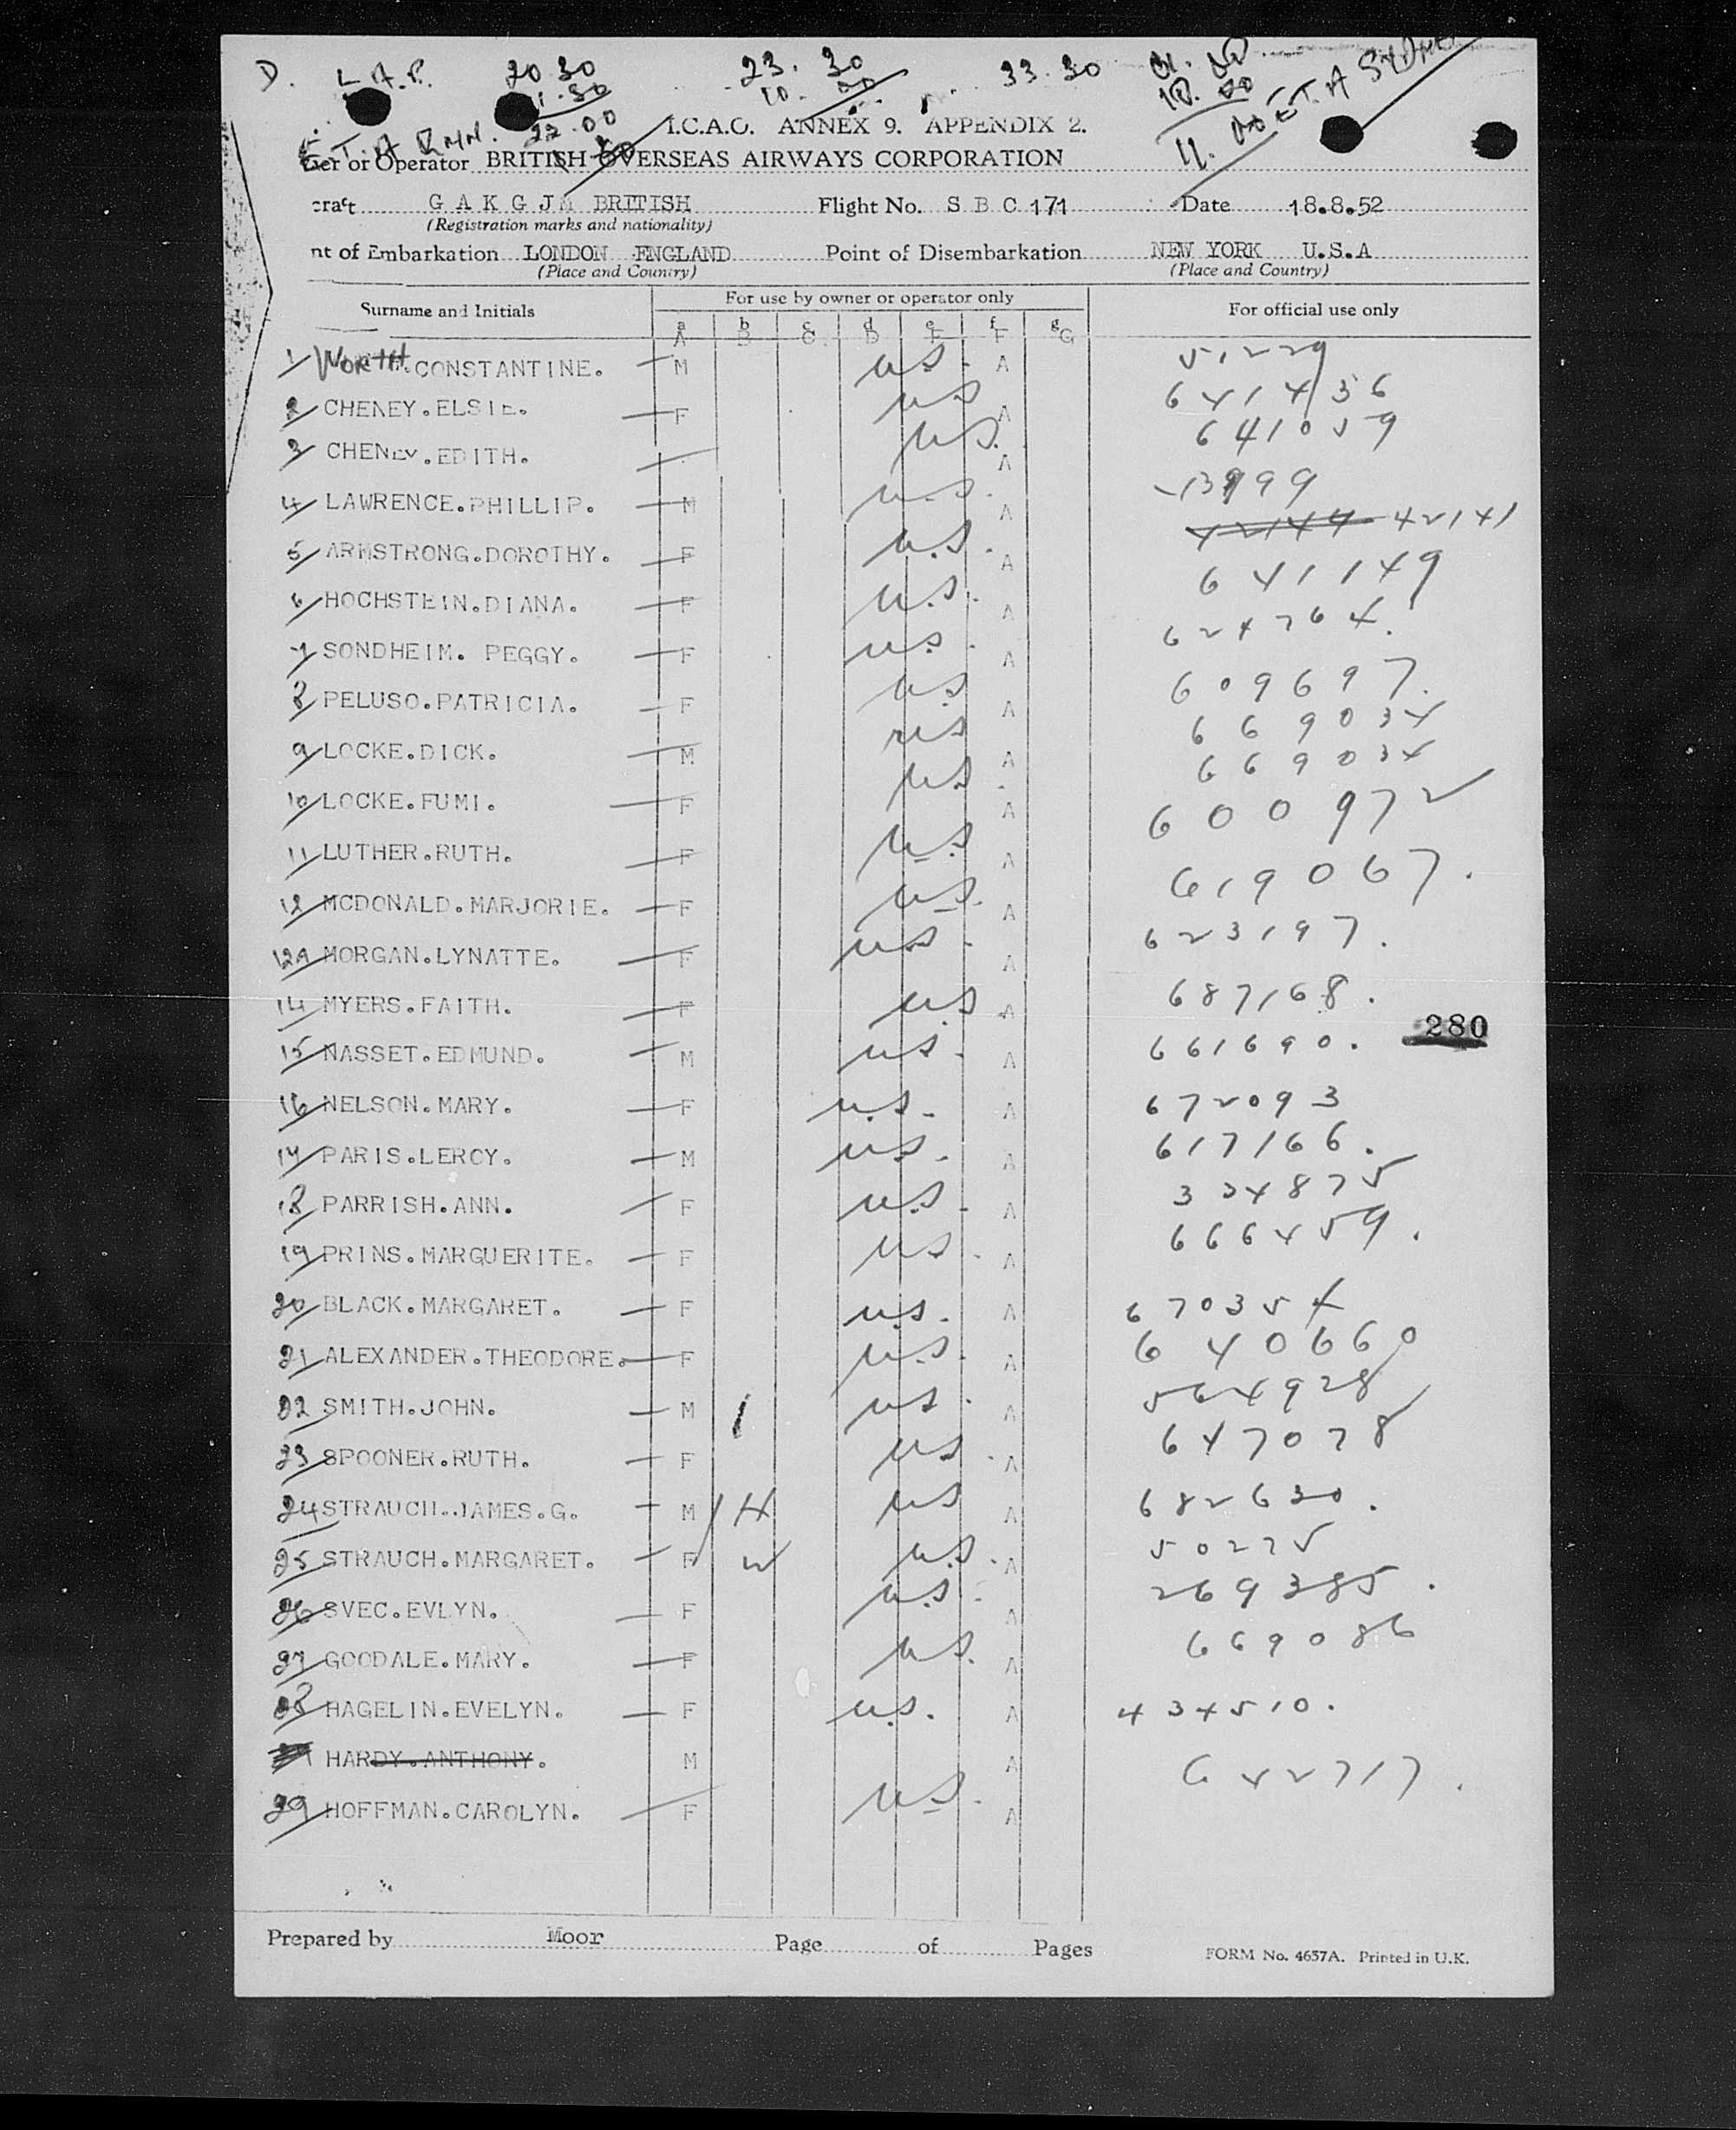 D. L.A.P. 20 30 23. 30 33.30
1.30 10. 00
22.00
I.C.A.O. ANNEX 9. APPENDIX 2.
E.T.A SYDNEY
E.T.A
er or Operator BRITISH OVERSEAS AIRWAYS CORPORATION
craft G A K G JM BRITISH Flight No. S B C 171 Date 18.8.52
(Registration marks and nationality)
nt of Embarkation LONDON ENGLAND Point of Disembarkation NEW YORK U.S.A
(Place and Country) (Place and Country)
Surname and Initials For use by owner or operator only For official use only
a b c d e f g
A B C D E F G
1 WORTH.CONSTANTINE. M U.S. A 51229
2 CHENEY.ELSIE. F U.S A 641436
3 CHENEY.EDITH. U.S. A 641059
4 LAWRENCE.PHILLIP. M U.S. A 13999
5 ARMSTRONG.DOROTHY. F U.S. A 42144 42141
6 HOCHSTEIN.DIANA. F U.S. A 641149
7 SONDHEIM. PEGGY. F U.S. A 624764.
8 PELUSO.PATRICIA. F U.S A 609697.
9 LOCKE.DICK. M U.S A 669034
10 LOCKE.FUMI. F U.S. A 669034
11 LUTHER.RUTH. F U.S A 600972
12 MCDONALD.MARJORIE. F U.S. A 619067.
12A MORGAN.LYNATTE. F U.S. A 623197.
14 MYERS.FAITH. F U.S A 687168.
280
15 NASSET.EDMUND. M U.S. A 661690.
16 NELSON.MARY. F U.S. A 672093
17 PARIS.LEROY. M U.S. A 617166.
18 PARRISH.ANN. F U.S. A 324875
19 PRINS.MARGUERITE. F U.S. A 666459.
20 BLACK.MARGARET. F U.S. A 670354
21 ALEXANDER.THEODORE. F U.S. A 640660
22 SMITH.JOHN. M 1 U.S. A 564928
23 SPOONER.RUTH. F U.S. A 647078
24 STRAUCH.JAMES.G. M H U.S A 682630.
25 STRAUCH.MARGARET. F W U.S. A 50275
26 SVEC.EVLYN. F U.S. A 269385.
27 GOODALE.MARY. F U.S. A 669086
28 HAGELIN.EVELYN. F U.S. A 434510.
HARDY.ANTHONY. M A
29 HOFFMAN.CAROLYN. F U.S. A 642717.
Prepared by Moor Page of Pages
FORM No. 4657A. Printed in U.K.